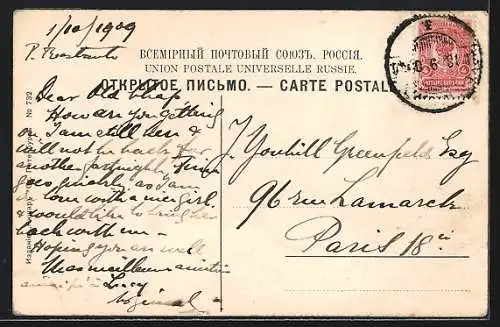 1/10/1909
P. Restante
ВСЕМІРНЫЙ ПОЧТОВЫЙ СОЮЗЪ. РОССІЯ.
UNION POSTALE UNIVERSELLE RUSSIE.
ОТКРЫТОЕ ПИСЬМО. — CARTE POSTALE
Dear Old Chap,
How are you getting
on I am still here &
will not be back for
another fortnight. Time
goes quickly as I am
in love with a nice girl
& would like to bring her
back with me —
Hoping you are well
Mes meilleures amitiés
à Lucy
J. Youhill Greenfield Esq
96 rue Lamarck
Paris 18e
№ 732